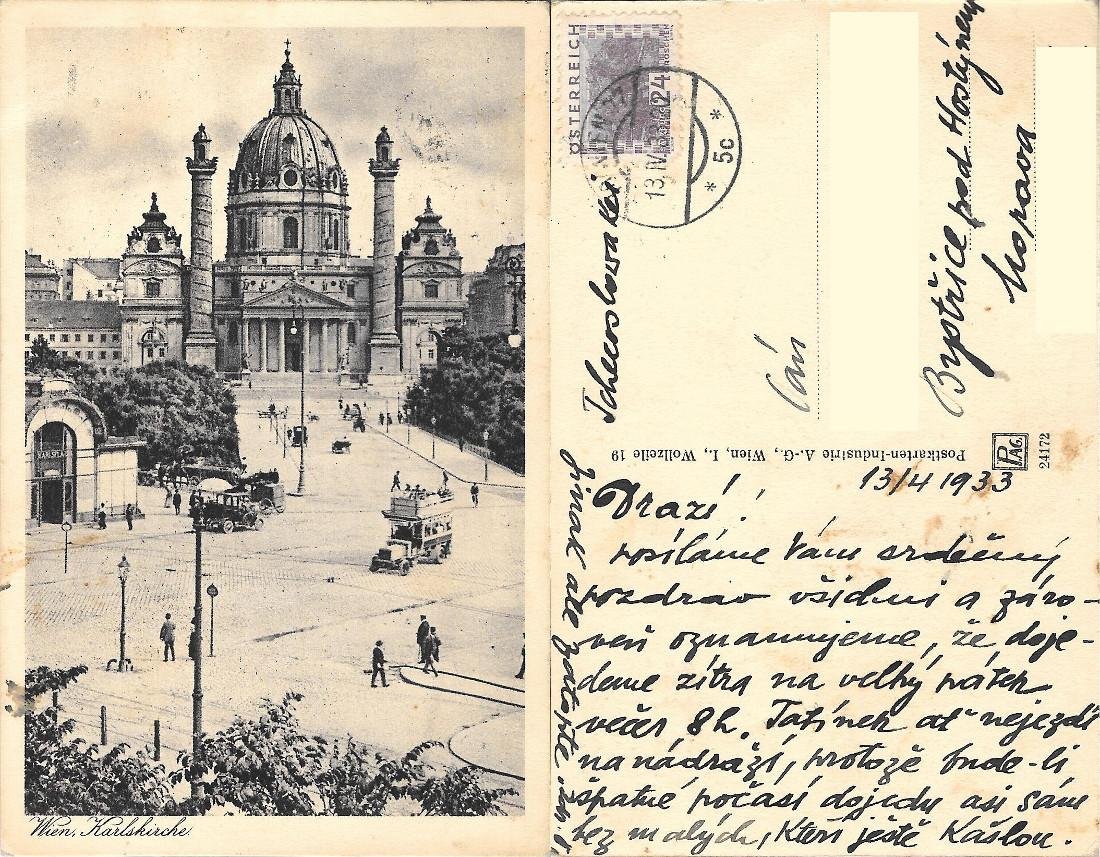 KARLSPLATZ
Wien, Karlskirche.
ÖSTERREICH
24
WIEN
13.IV.33
* 5c *
Tschechoslowakei
Bystřice pod Hostýnem
Morava
Postkarten-Industrie A.-G., Wien, I., Wollzeile 19
PAG.
24172
13/4 1933
Drazí!
posíláme Vám srdečný
pozdrav všichni a záro-
veň oznamujeme, že doje-
deme zítra na velký pátek
večer 8h. Tatínek ať nejezdí
na nádraží, protože bude-li
špatné počasí dojedu asi sám
bez malých, kteří ještě kašlou.
Jinak ale zatopte